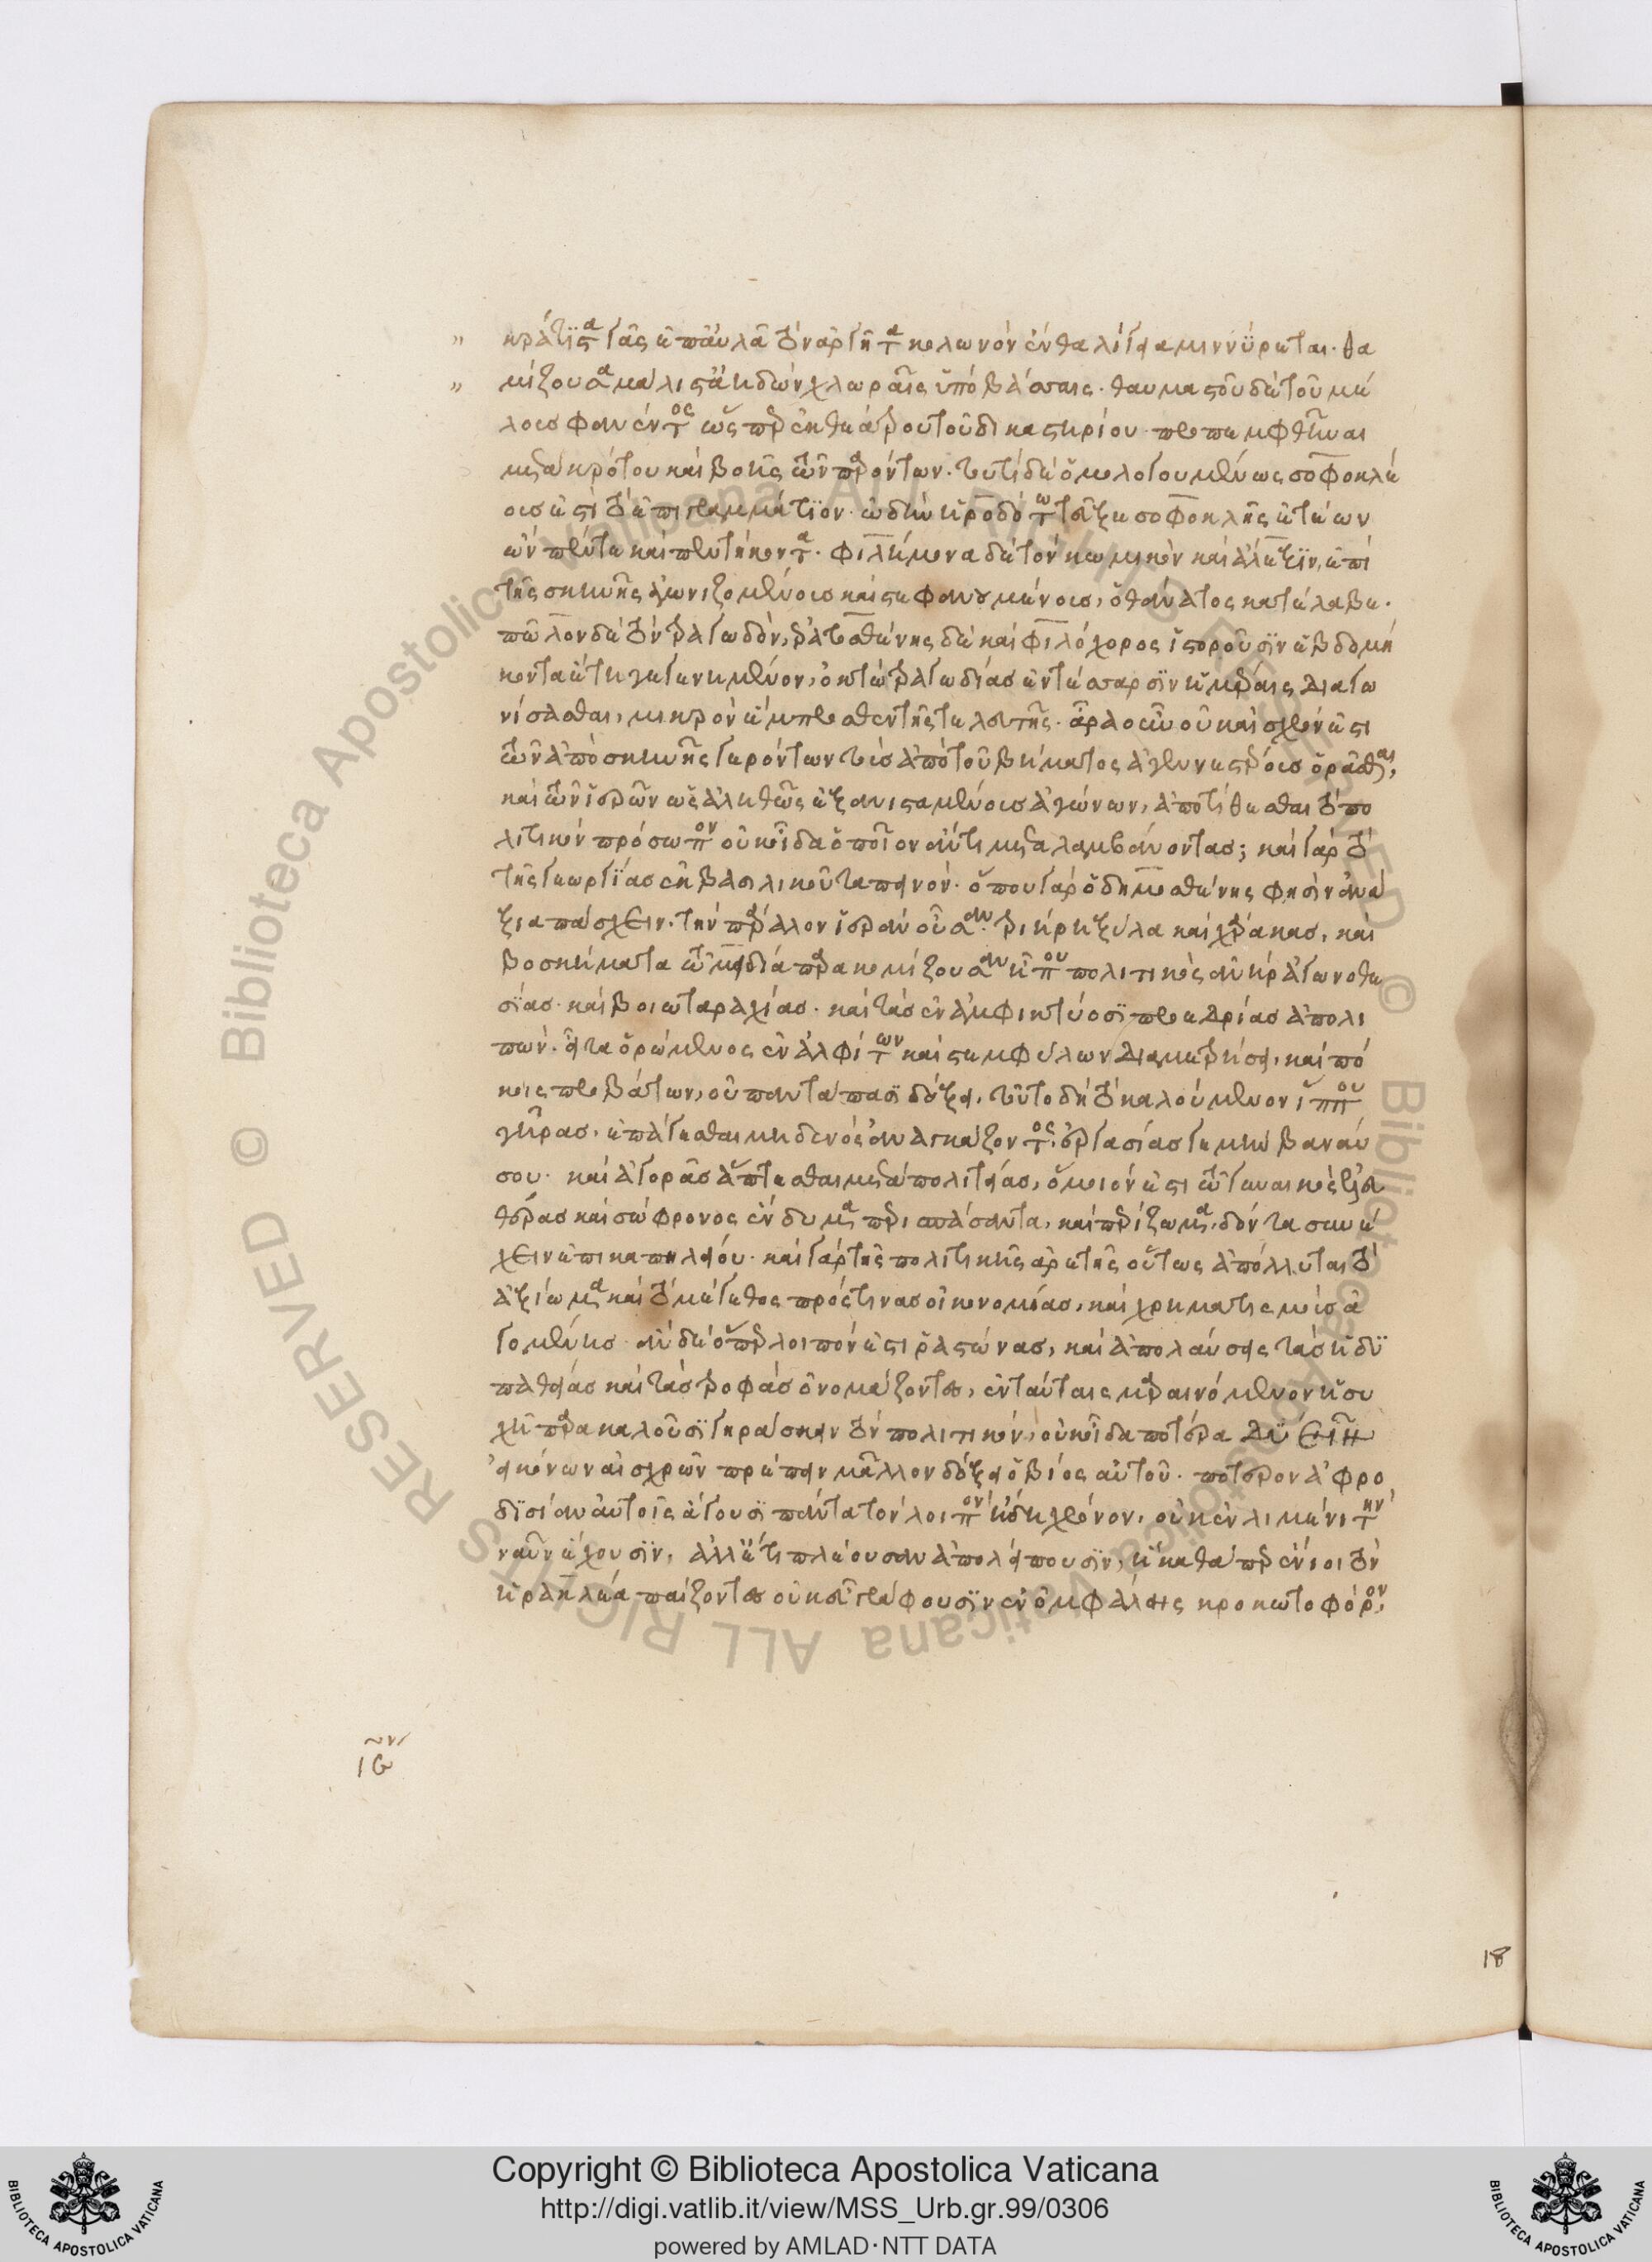 κράτιστα γᾶς ἔπαυλα τὸν ἀργῆτα κολωνὸν ἔνθα λίγεια μιννύρεται. θα
μίζουσα μάλιστ' ἀηδὼν χλωραῖς ὑπὸ βάσσαις. θαυμαστοῦ δὲ τοῦ μέ
λους φανέντος ὥσπερ ἐκ θεάτρου τοῦ δικαστηρίου προπεμφθῆναι
μετὰ κρότου καὶ βοῆς τῶν παρόντων. τουτὶ δὲ ὁμολογουμένως σοφοκλέ
ους ἐστὶ τὸ ἐπιγραμμάτιον· ὠδὴν ἡροδότω τεῦξε σοφοκλῆς ἐτέων
ὢν πέντε καὶ πεντήκοντα. φιλήμονα δὲ τὸν κωμικὸν καὶ ἄλεξιν, ἐπὶ
τῆς σκηνῆς ἀγωνιζομένους καὶ στεφανουμένους, ὁ θάνατος κατέλαβε.
πῶλον δὲ τὸν τραγωδὸν, ἐρατοσθένης δὲ καὶ φιλόχορος ἱστοροῦσιν ἑβδομή
κοντα ἔτη γεγενημένον, ὀκτὼ τραγωδίας ἐν τέσσαρσιν ἡμέραις διαγω
νίσασθαι, μικρὸν ἔμπροσθεν τῆς τελευτῆς. ἆρα οὖν οὐκ αἰσχρόν ἐστι
τῶν ἀπὸ σκηνῆς γερόντων τοὺς ἀπὸ τοῦ βήματος ἀγεννεστέρους ὁρᾶσθαι,
καὶ τῶν ἱερῶν ὡς ἀληθῶς ἐξανισταμένους ἀγώνων, ἀποτίθεσθαι τὸ πο
λιτικὸν πρόσωπον οὐκ οἶδα ὁποῖον ἀντιμεταλαμβάνοντας; καὶ γὰρ τὸ
τῆς γεωργίας ἐκ βασιλικοῦ ταπεινόν. ὅπου γὰρ ὁ δημοσθένης φησὶν ἀνά
ξια πάσχειν. τὴν πάραλον ἱερὰν οὖσαν τριήρη ξύλα καὶ χάρακας, καὶ
βοσκήματα τῶ μειδία παρακομίζουσαν ἤ που πολιτικὸς ἀνὴρ ἀγωνοθε
σίας· καὶ βοιωταραχίας· καὶ τὰς ἐν ἀμφικτύοσι προεδρίας ἀπολι
πών. εἶτα ὁρώμενος ἐν ἀλφίτων καὶ στεμφύλων διαμετρήσει, καὶ πό
κοις προβάτων, οὐ παντάπασι δόξει, τοῦτο δὴ τὸ καλούμενον, ἵππου
γῆρας. ἐπάγεσθαι μηδενὸς ἀναγκάζοντος; ἐργασίας γε μὴν βαναύ
σου· καὶ ἀγορᾶς ἅπτεσθαι μετὰ πολιτείας, ὅμοιόν ἐστι τῶ γυναικὸς ἐλευ
θέρας καὶ σώφρονος ἔνδυμα περισπάσαντα, καὶ περίζωμα, δόντα συνέ
χειν ἐπὶ καπηλείου. καὶ γὰρ τῆς πολιτικῆς ἀρετῆς οὕτως ἀπόλλυται τὸ
ἀξίωμα καὶ τὸ μέγεθος πρός τινας οἰκονομίας, καὶ χρηματισμοὺς ἀ
γομένης. ἂν δὲ ὅπερ λοιπόν ἐστι ῥαστώνας, καὶ ἀπολαύσεις τὰς ἡδυ
παθείας καὶ τὰς τροφὰς ὀνομάζοντες, ἐν ταύταις μαραινόμενον ἡσυ
χῆ παρακαλοῦσι γηράσκειν τὸν πολιτικόν, οὐκ οἶδα ποτέρα δυεῖν
εἰκόνων αἰσχρῶν πρέπειν μᾶλλον δόξει ὁ βίος αὐτοῦ. πότερον ἀφρο
δίσι ἂν αὐτοῖς ἄγουσι πάντα τὸν λοιπὸν ἤδη χρόνον, οὐκ ἐν λιμένι τὴν
ναῦν ἔχουσιν, ἀλλ' ἔτι πλέουσαν ἀπολείπουσιν, ἢ καθάπερ ἔνιοι τὸν
ἡρακλέα παίζοντες οὐκ εὖ γράφουσιν ἐν ὀμφάλης κροκωτοφόρον,
18
Copyright © Biblioteca Apostolica Vaticana
http://digi.vatlib.it/view/MSS_Urb.gr.99/0306
powered by AMLAD·NTT DATA
BIBLIOTECA APOSTOLICA VATICANA
BIBLIOTECA APOSTOLICA VATICANA